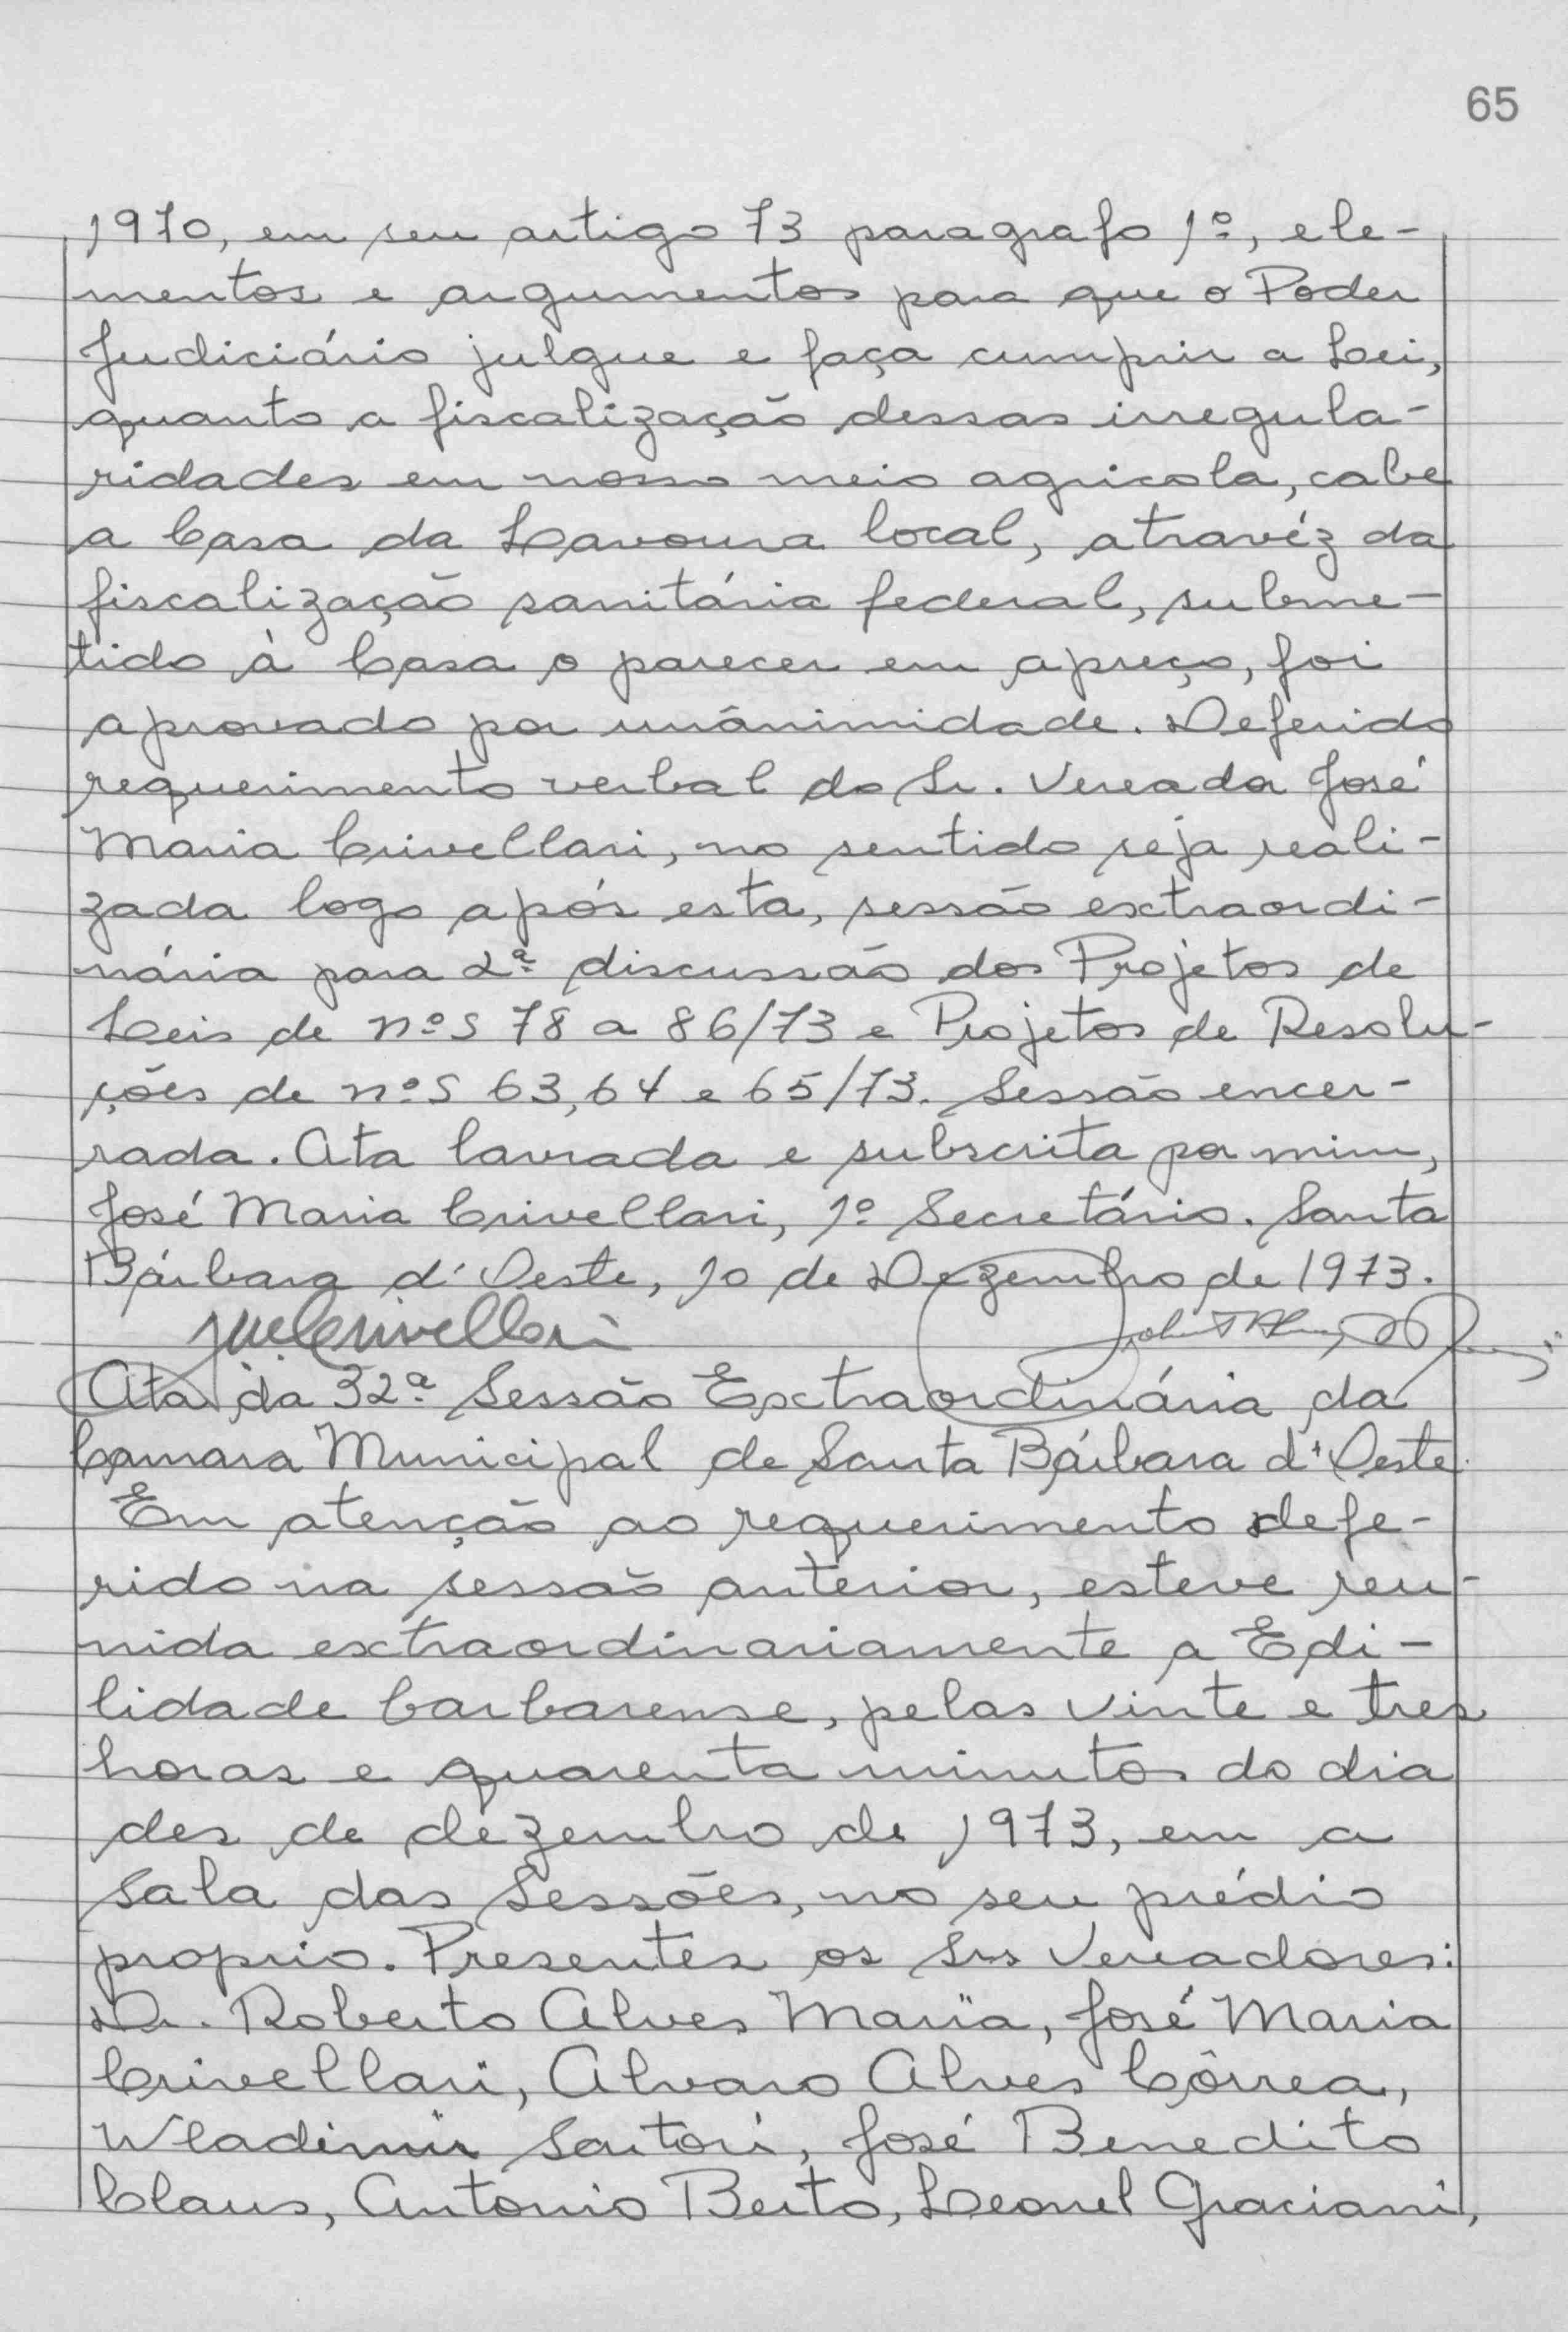 65
1970, em seu artigo 73 paragrafo 1º, ele-
mentos e argumentos para que o Poder
Judiciário julgue e faça cumprir a Lei,
quanto a fiscalização dessas irregula-
ridades em nosso meio agricola, cabe
a Casa da Lavoura local, atravéz da
fiscalização sanitária federal, subme-
tido à Casa o parecer em apreço, foi
aprovado por unânimidade. Deferido
requerimento verbal do Sr. Vereador José
Maria Crivellari, no sentido seja reali-
zada logo após esta, sessão extraordi-
nária para 2ª discussão dos Projetos de
Leis de nºs 78 a 86/73 e Projetos de Resolu-
ções de nºs 63, 64 e 65/73. Sessão encer-
rada. Ata lavrada e subscrita por mim,
José Maria Crivellari, 1º Secretário. Santa
Bárbara d'Oeste, 10 de Dezembro de 1973.
Crivellari
Ata da 32ª Sessão Extraordinária da
Camara Municipal de Santa Bárbara d'Oeste.
Em atenção ao requerimento defe-
rido na sessão anterior, esteve reu-
nida extraordinariamente a Edi-
lidade barbarense, pelas vinte e tres
horas e quarenta minutos do dia
des de dezembro de 1973, em a
Sala das Sessões, no seu prédio
proprio. Presentes os Srs Vereadores:
Dr. Roberto Alves Maria, José Maria
Crivellari, Alvaro Alves Côrrea,
Wladimir Sartori, José Benedito
Claus, Antonio Berto, Leonel Graciani,